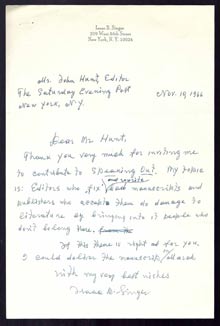 Isaac B. Singer
209 West 86th Street
New York, N. Y. 10024
Nov. 19, 1966
Mr. John Hunt, Editor
The Saturday Evening Post
New York, N.Y.
Dear Mr. Hunt,
Thank you very much for inviting me
to contribute to Speaking Out. My topic
is: Editors who "fix" bad manuscripts and
publishers who accept them do damage to
literature by bringing into it people who
don't belong there.
If this theme is right for you
I could deliver the manuscript
With my very best wishes
Isaac B. Singer